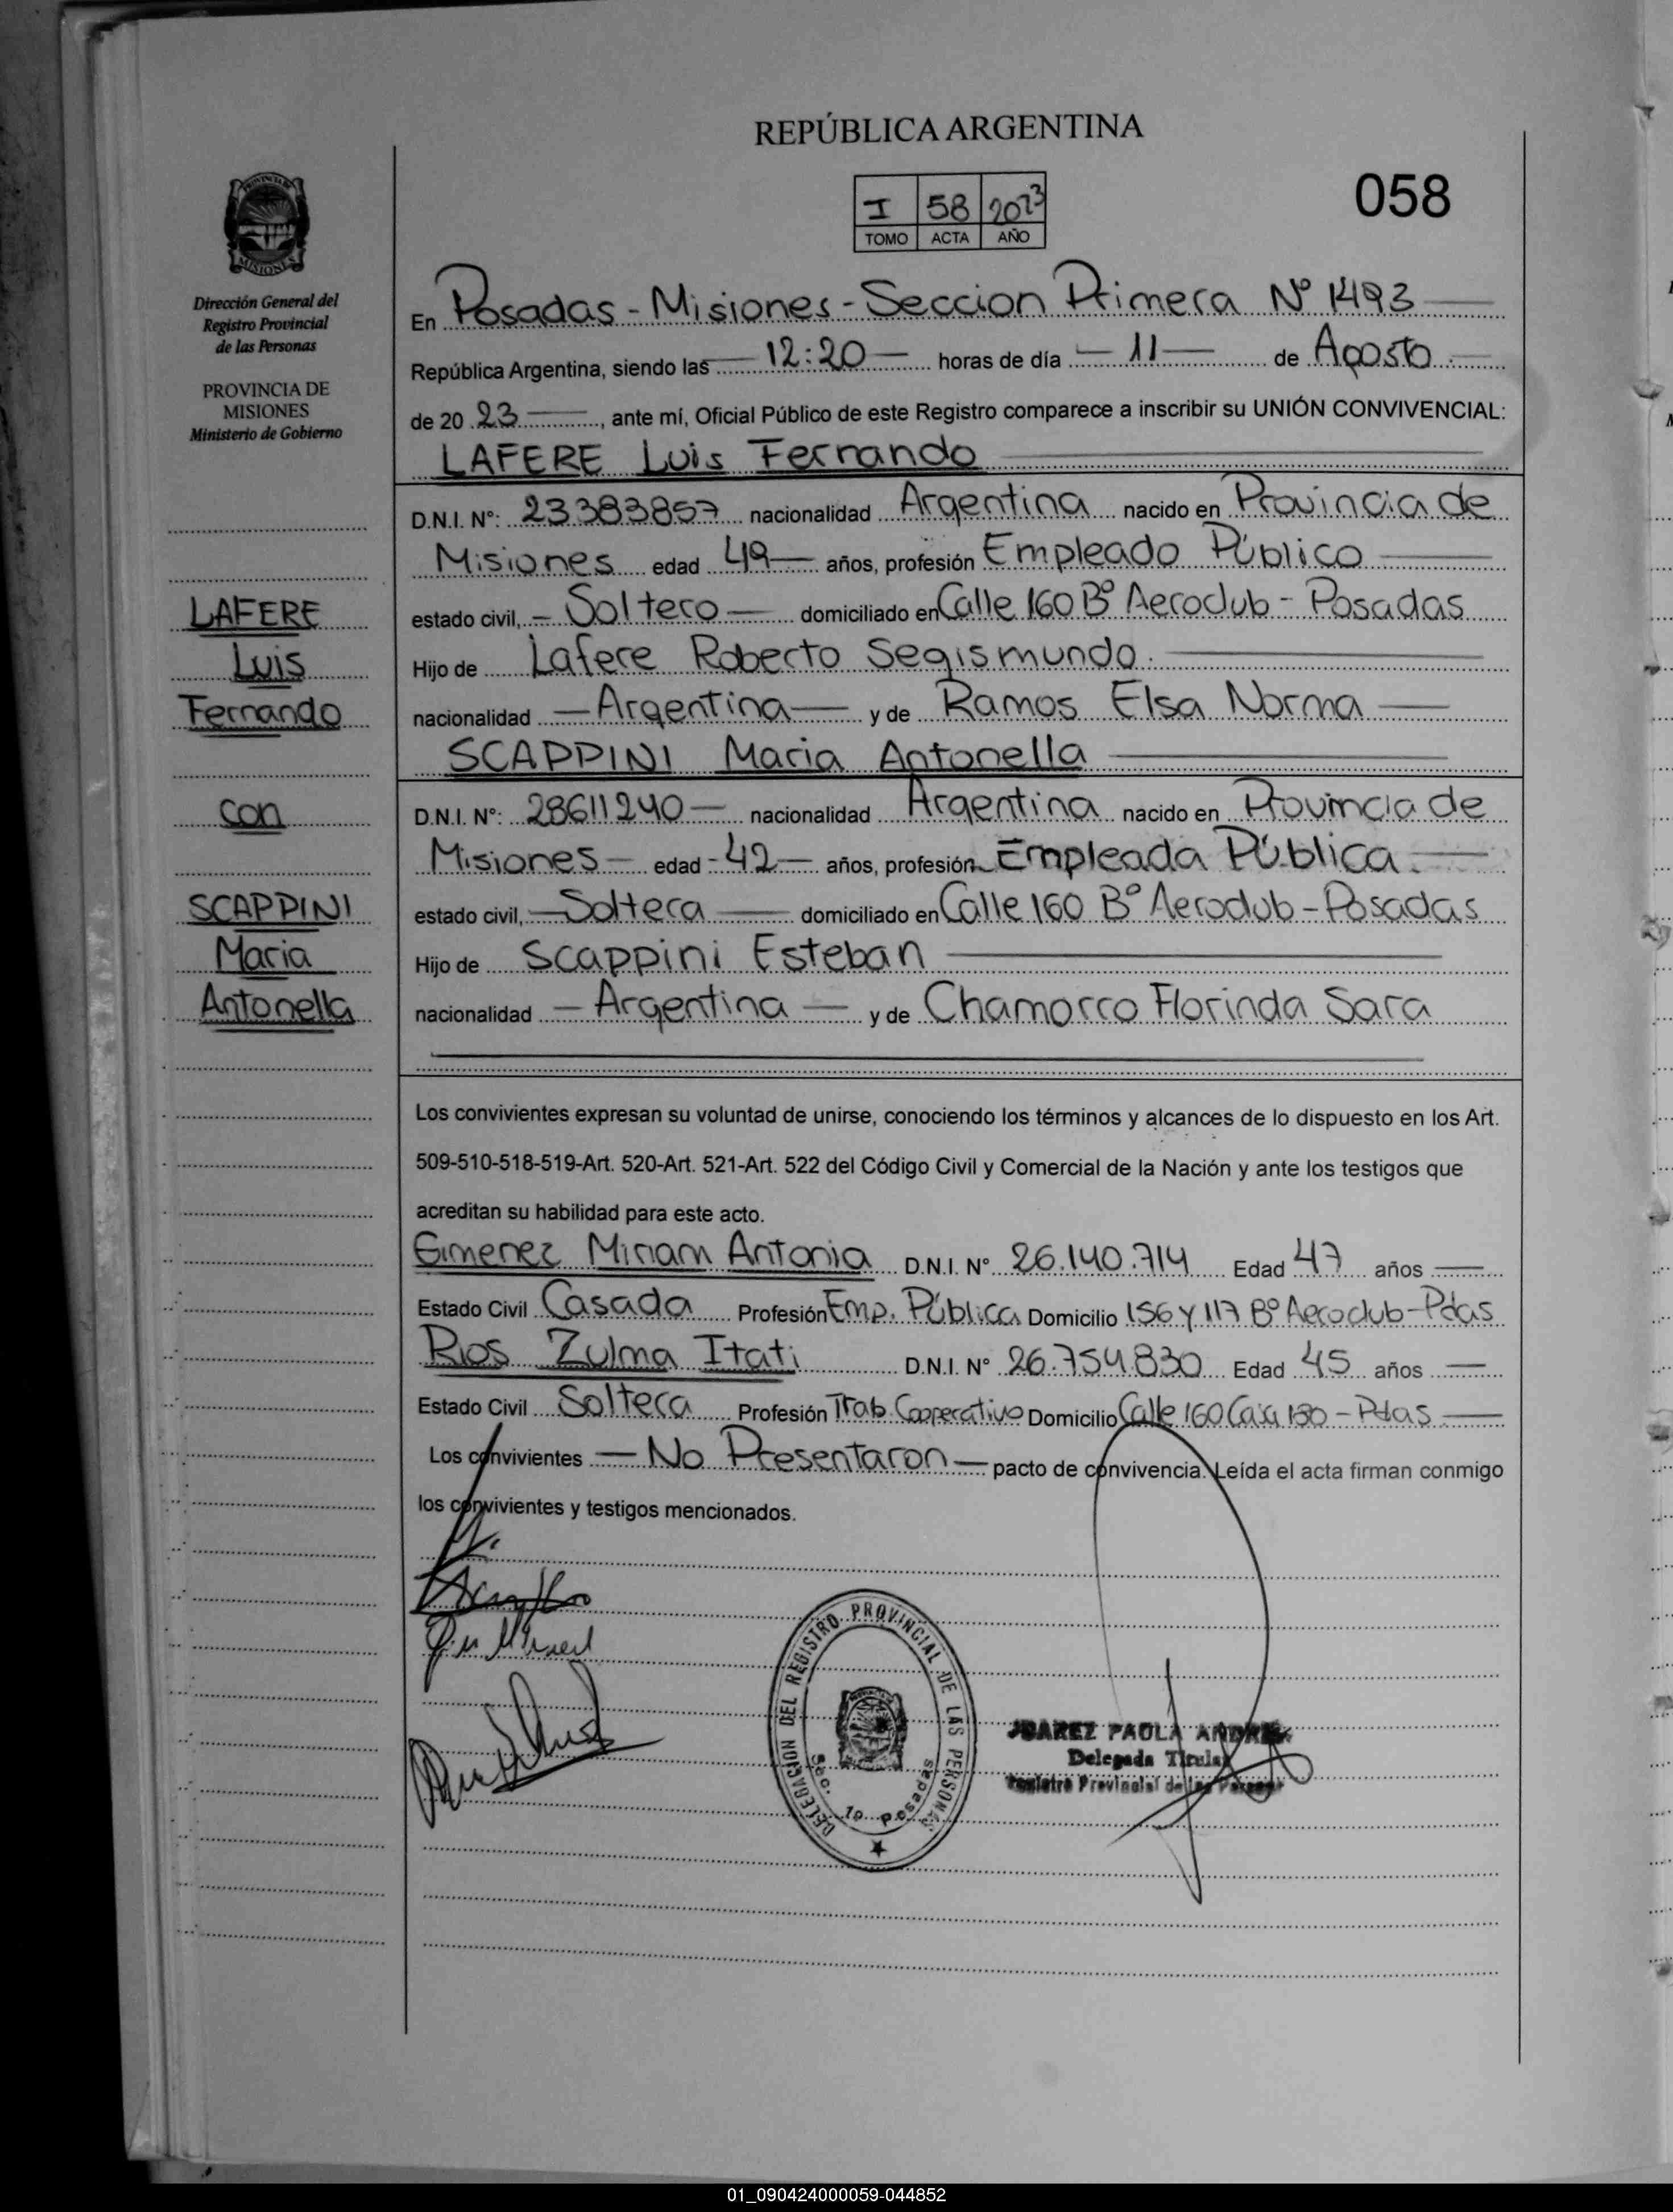 REPÚBLICA ARGENTINA
I 58 2023
TOMO ACTA AÑO
058
PROVINCIA DE
MISIONES
Dirección General del
Registro Provincial
de las Personas
PROVINCIA DE
MISIONES
Ministerio de Gobierno
LAFERE
Luis
Fernando
con
SCAPPINI
Maria
Antonella
En Posadas - Misiones - Seccion Primera Nº 1493
República Argentina, siendo las 12:20 horas de día 11 de Agosto
de 20 23, ante mí, Oficial Público de este Registro comparece a inscribir su UNIÓN CONVIVENCIAL:
LAFERE Luis Fernando
D.N.I. Nº: 23383857 nacionalidad Argentina nacido en Provincia de
Misiones edad 49 años, profesión Empleado Público
estado civil, Soltero domiciliado en Calle 160 Bº Aeroclub - Posadas
Hijo de Lafere Roberto Segismundo.
nacionalidad Argentina y de Ramos Elsa Norma
SCAPPINI Maria Antonella
D.N.I. Nº: 28611240 nacionalidad Argentina nacido en Provincia de
Misiones edad 42 años, profesión Empleada Pública.
estado civil, Soltera domiciliado en Calle 160 Bº Aeroclub - Posadas
Hijo de Scappini Esteban
nacionalidad Argentina y de Chamorro Florinda Sara
Los convivientes expresan su voluntad de unirse, conociendo los términos y alcances de lo dispuesto en los Art.
509-510-518-519-Art. 520-Art. 521-Art. 522 del Código Civil y Comercial de la Nación y ante los testigos que
acreditan su habilidad para este acto.
Gimenez Miriam Antonia D.N.I. Nº 26.140.714 Edad 47 años
Estado Civil Casada Profesión Emp. Pública Domicilio 156 y 117 Bº Aeroclub - Pdas
Rios Zulma Itati D.N.I. Nº 26.754.830 Edad 45 años
Estado Civil Soltera Profesión Trab. Cooperativo Domicilio Calle 160 Casa 130 - Pdas
Los convivientes No Presentaron pacto de convivencia. Leída el acta firman conmigo
los convivientes y testigos mencionados.
DELEGACION DEL REGISTRO PROVINCIAL DE LAS PERSONAS
Sec. 1a Posadas
JUAREZ PAOLA ANDREA
Delegada Titular
Registro Provincial de las Personas
01_090424000059-044852